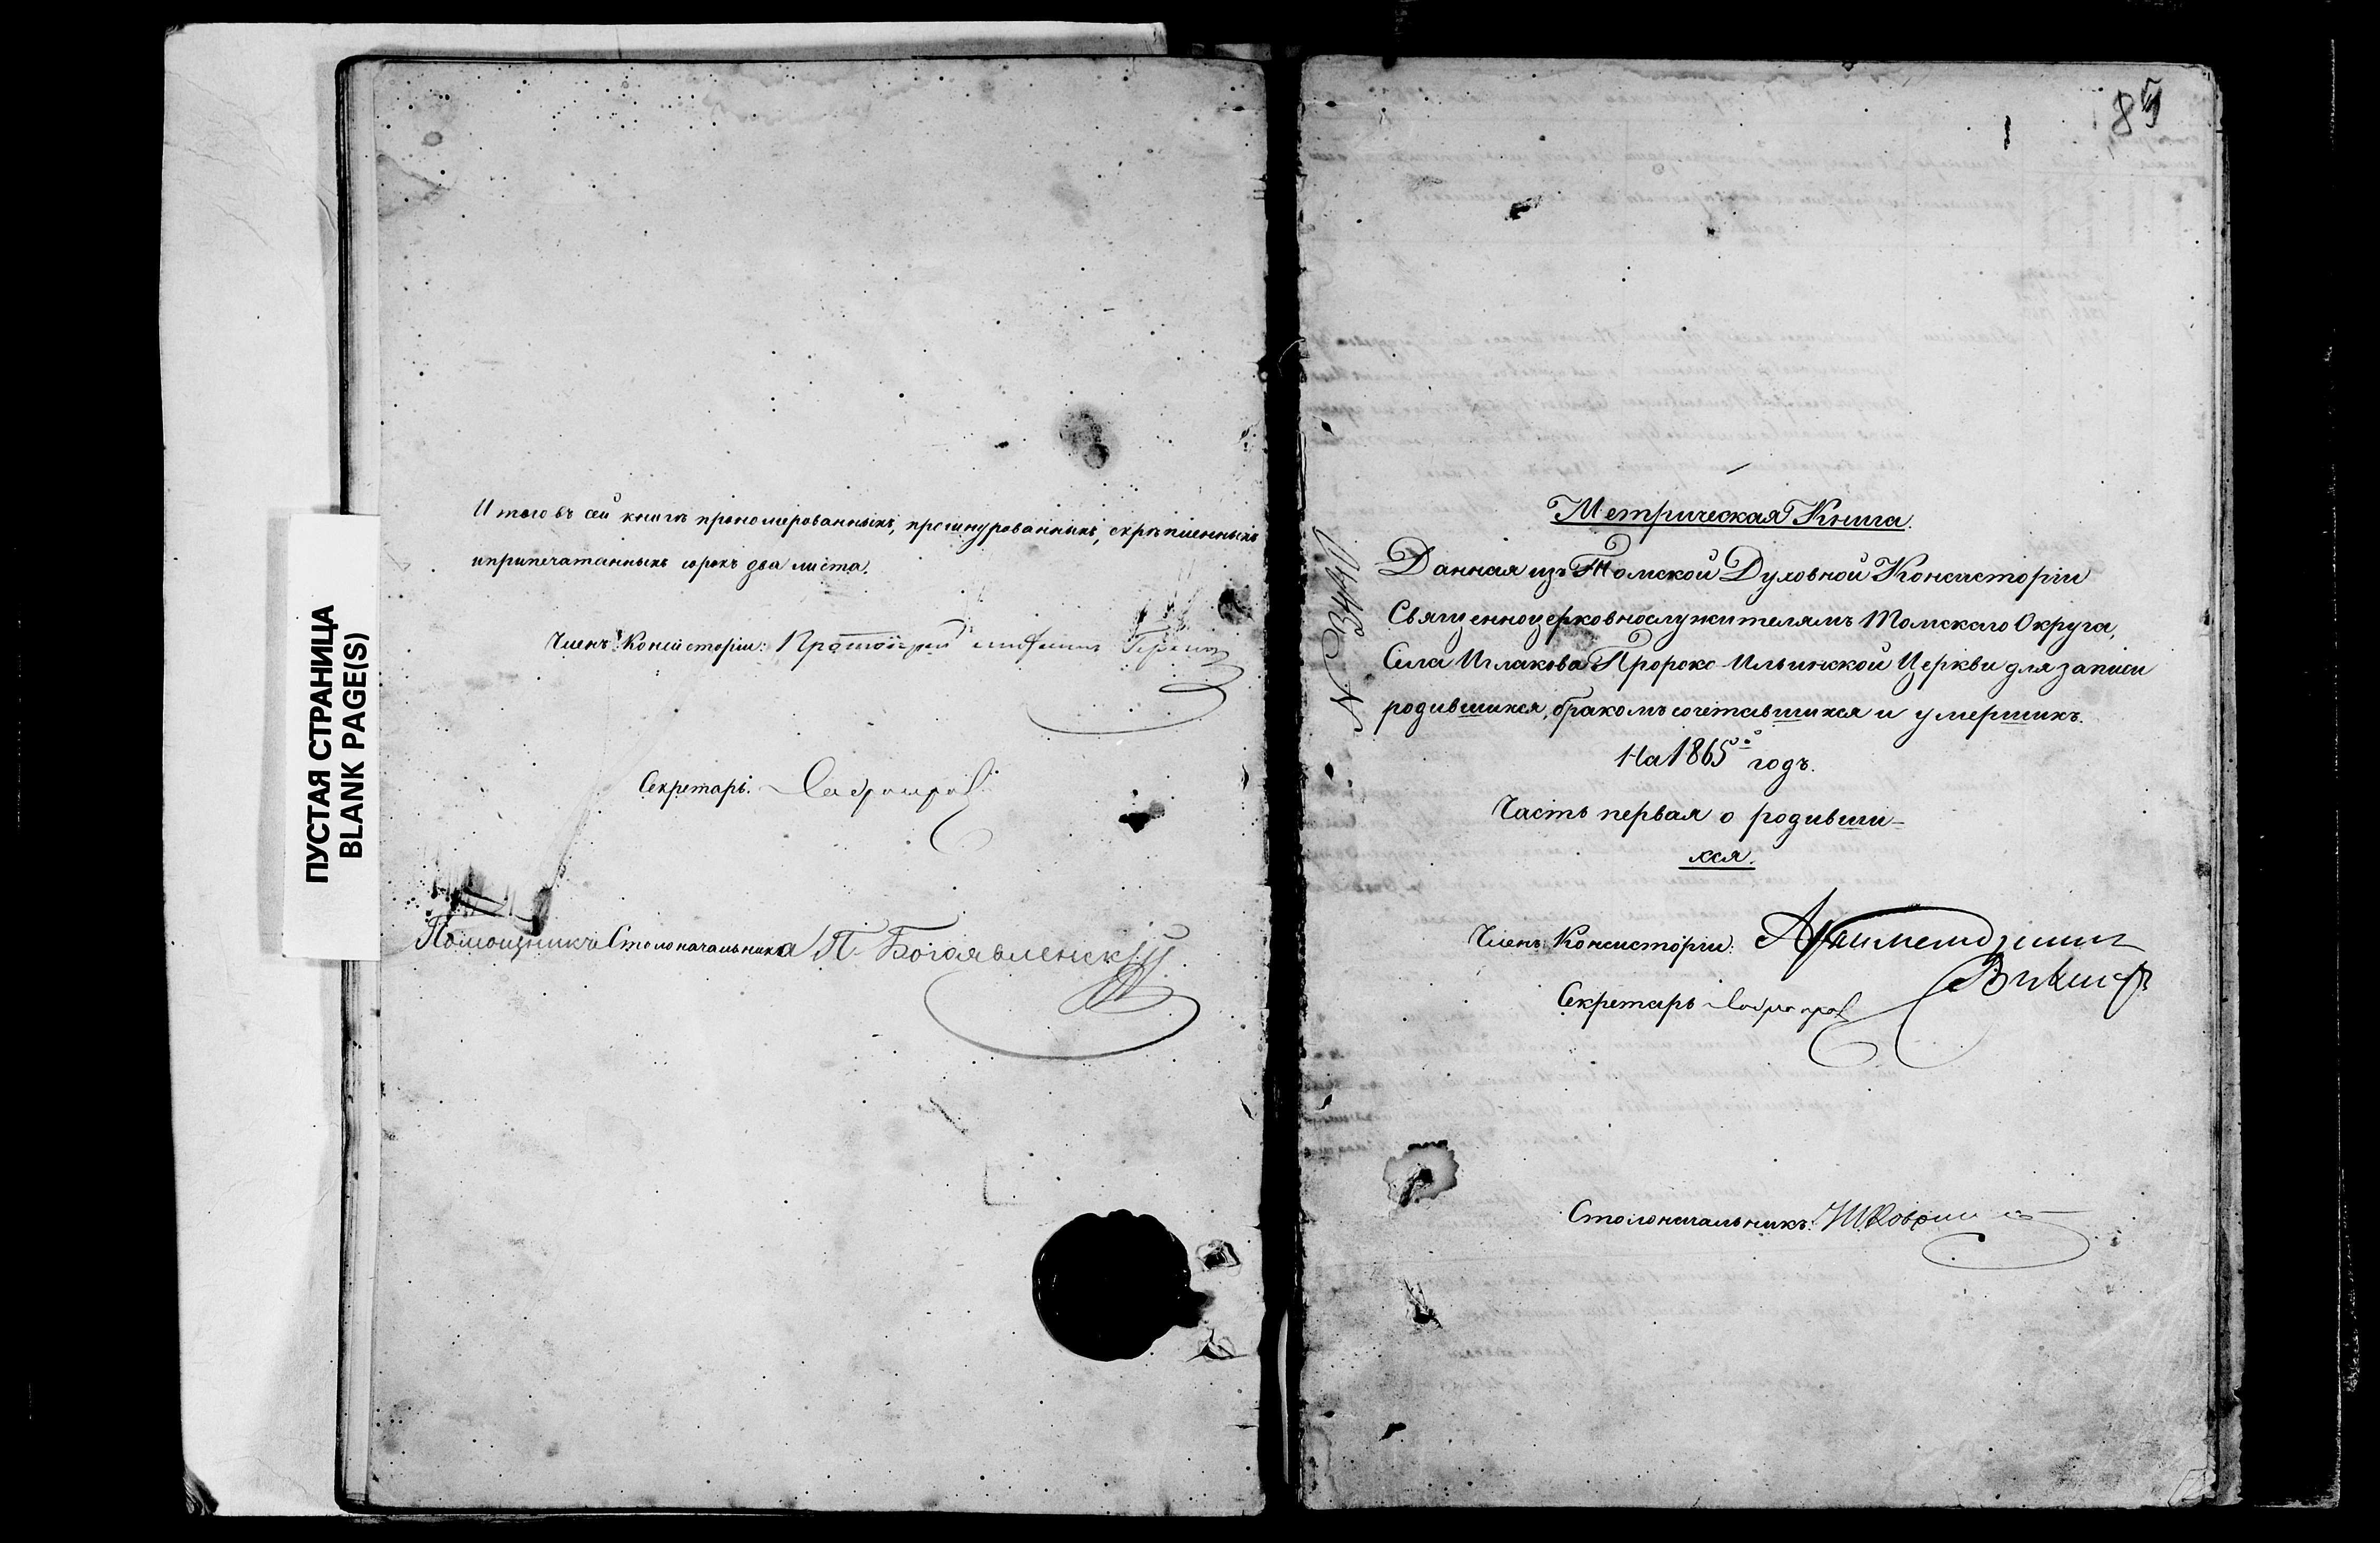 ПУСТАЯ СТРАНИЦА
BLANK PAGE(S)
Итого въ сей книгѣ прономерованныхъ, прошнурованныхъ, скрѣпленныхъ
и припечатанныхъ сорокъ два листа.
Членъ Консисторіи: Протоіерей
Секретарь.
Помощникъ Столоначальника П. Богоявленскій
85
№ 3440
Метрическая Книга.
Данная изъ Томской Духовной Консисторіи
Священноцерковнослужителямъ Томскаго Округа,
Села Иглакова Пророко-Ильинской Церкви для записи
родившихся, бракомъ сочетавшихся и умершихъ.
На 1865й годъ.
Часть первая о родивши-
хся.
Членъ Консисторіи: Архимандритъ
Викторъ
Секретарь
Столоначальникъ: